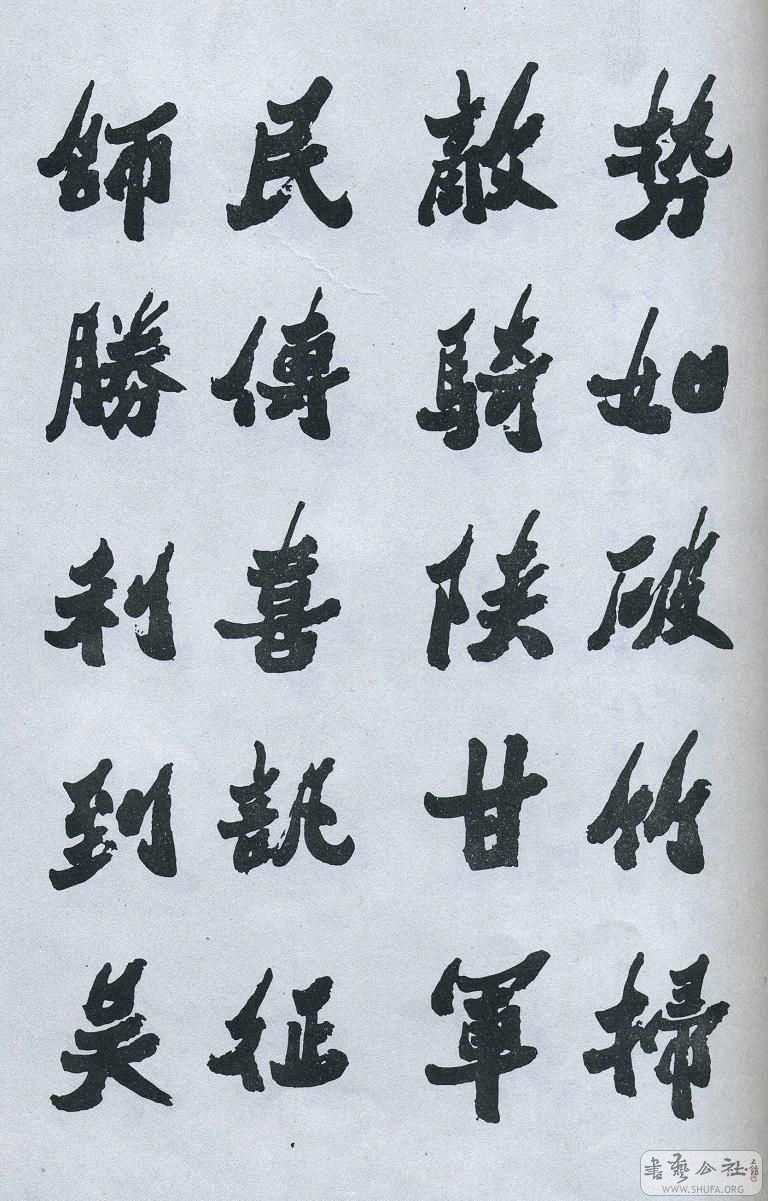 势如破竹掃
敵騎陝甘軍
民傳喜訊征
師勝利到吴
書藝公社
WWW.SHUFA.ORG